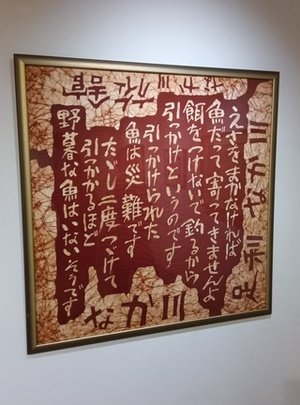 えさをまかなければ
魚だって寄ってきませんよ
餌をつけないで釣るから
引っかけというのです
引っかけられた
魚は災難です
たゞし二度つゞけて
引っかかるほど
野暮な魚はいないそうです
なか川旅館
なか川